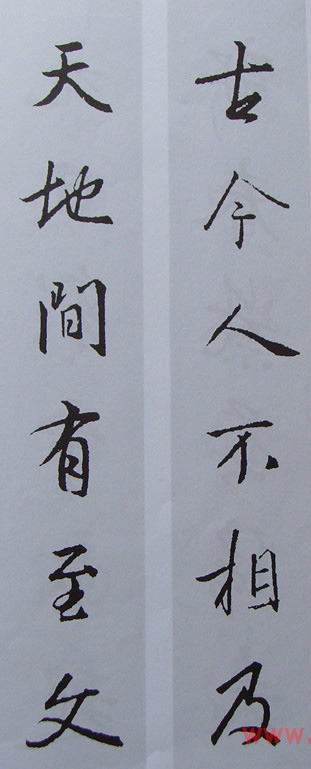 古今人不相及
天地間有至文
www.